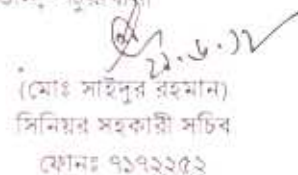 ২১.৬.১২
(মোঃ সাইদুর রহমান)
সিনিয়র সহকারী সচিব
ফোনঃ ৭১৭২২৫২